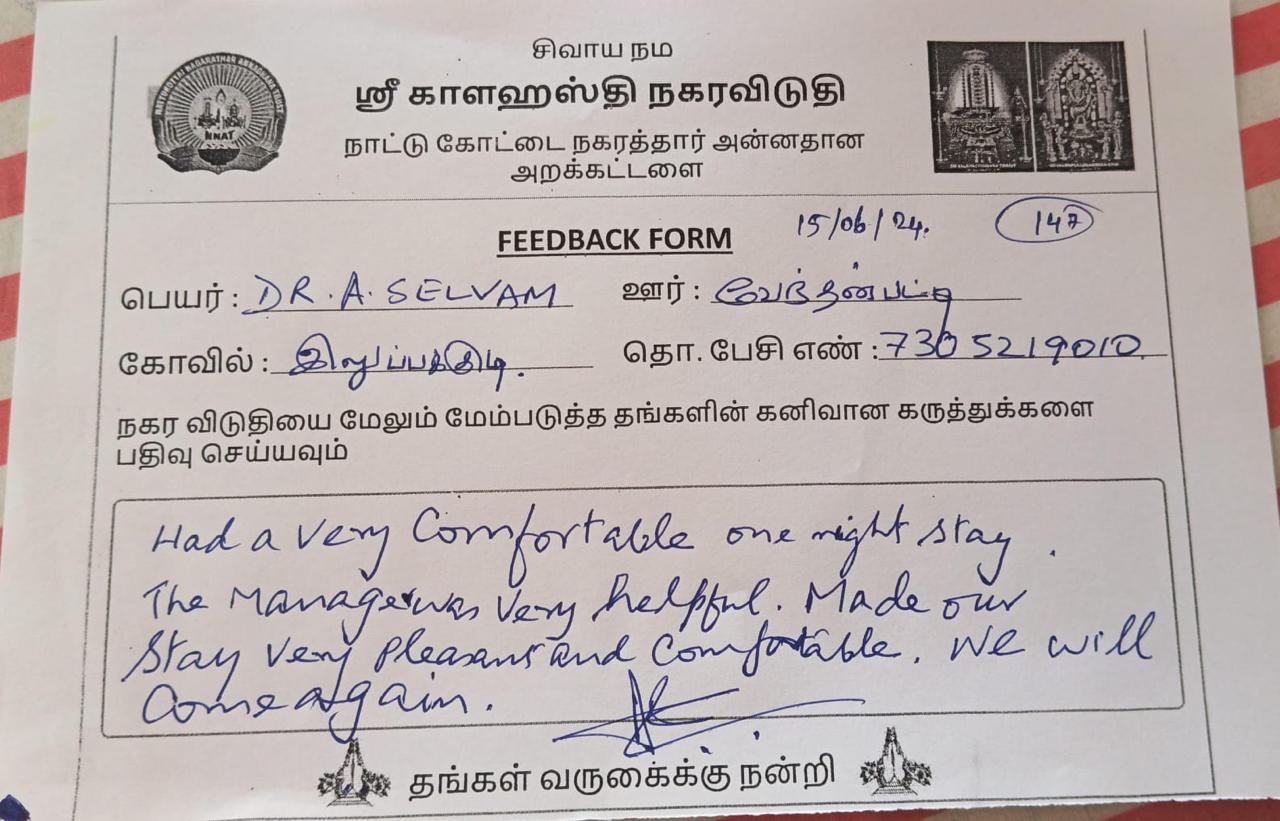 சிவாய நம
ஸ்ரீ காளஹஸ்தி நகரவிடுதி
நாட்டு கோட்டை நகரத்தார் அன்னதான
அறக்கட்டளை
NNAT
15/06/24.
147
FEEDBACK FORM
பெயர் : DR. A. SELVAM ஊர் : வேந்தன்பட்டி
கோவில் : இலுப்பக்குடி. தொ. பேசி எண் : 7305219010
நகர விடுதியை மேலும் மேம்படுத்த தங்களின் கனிவான கருத்துக்களை
பதிவு செய்யவும்
Had a very Comfortable one night stay.
The Manager was very helpful. Made our
stay very pleasant and comfortable. We will
come again.
தங்கள் வருகைக்கு நன்றி